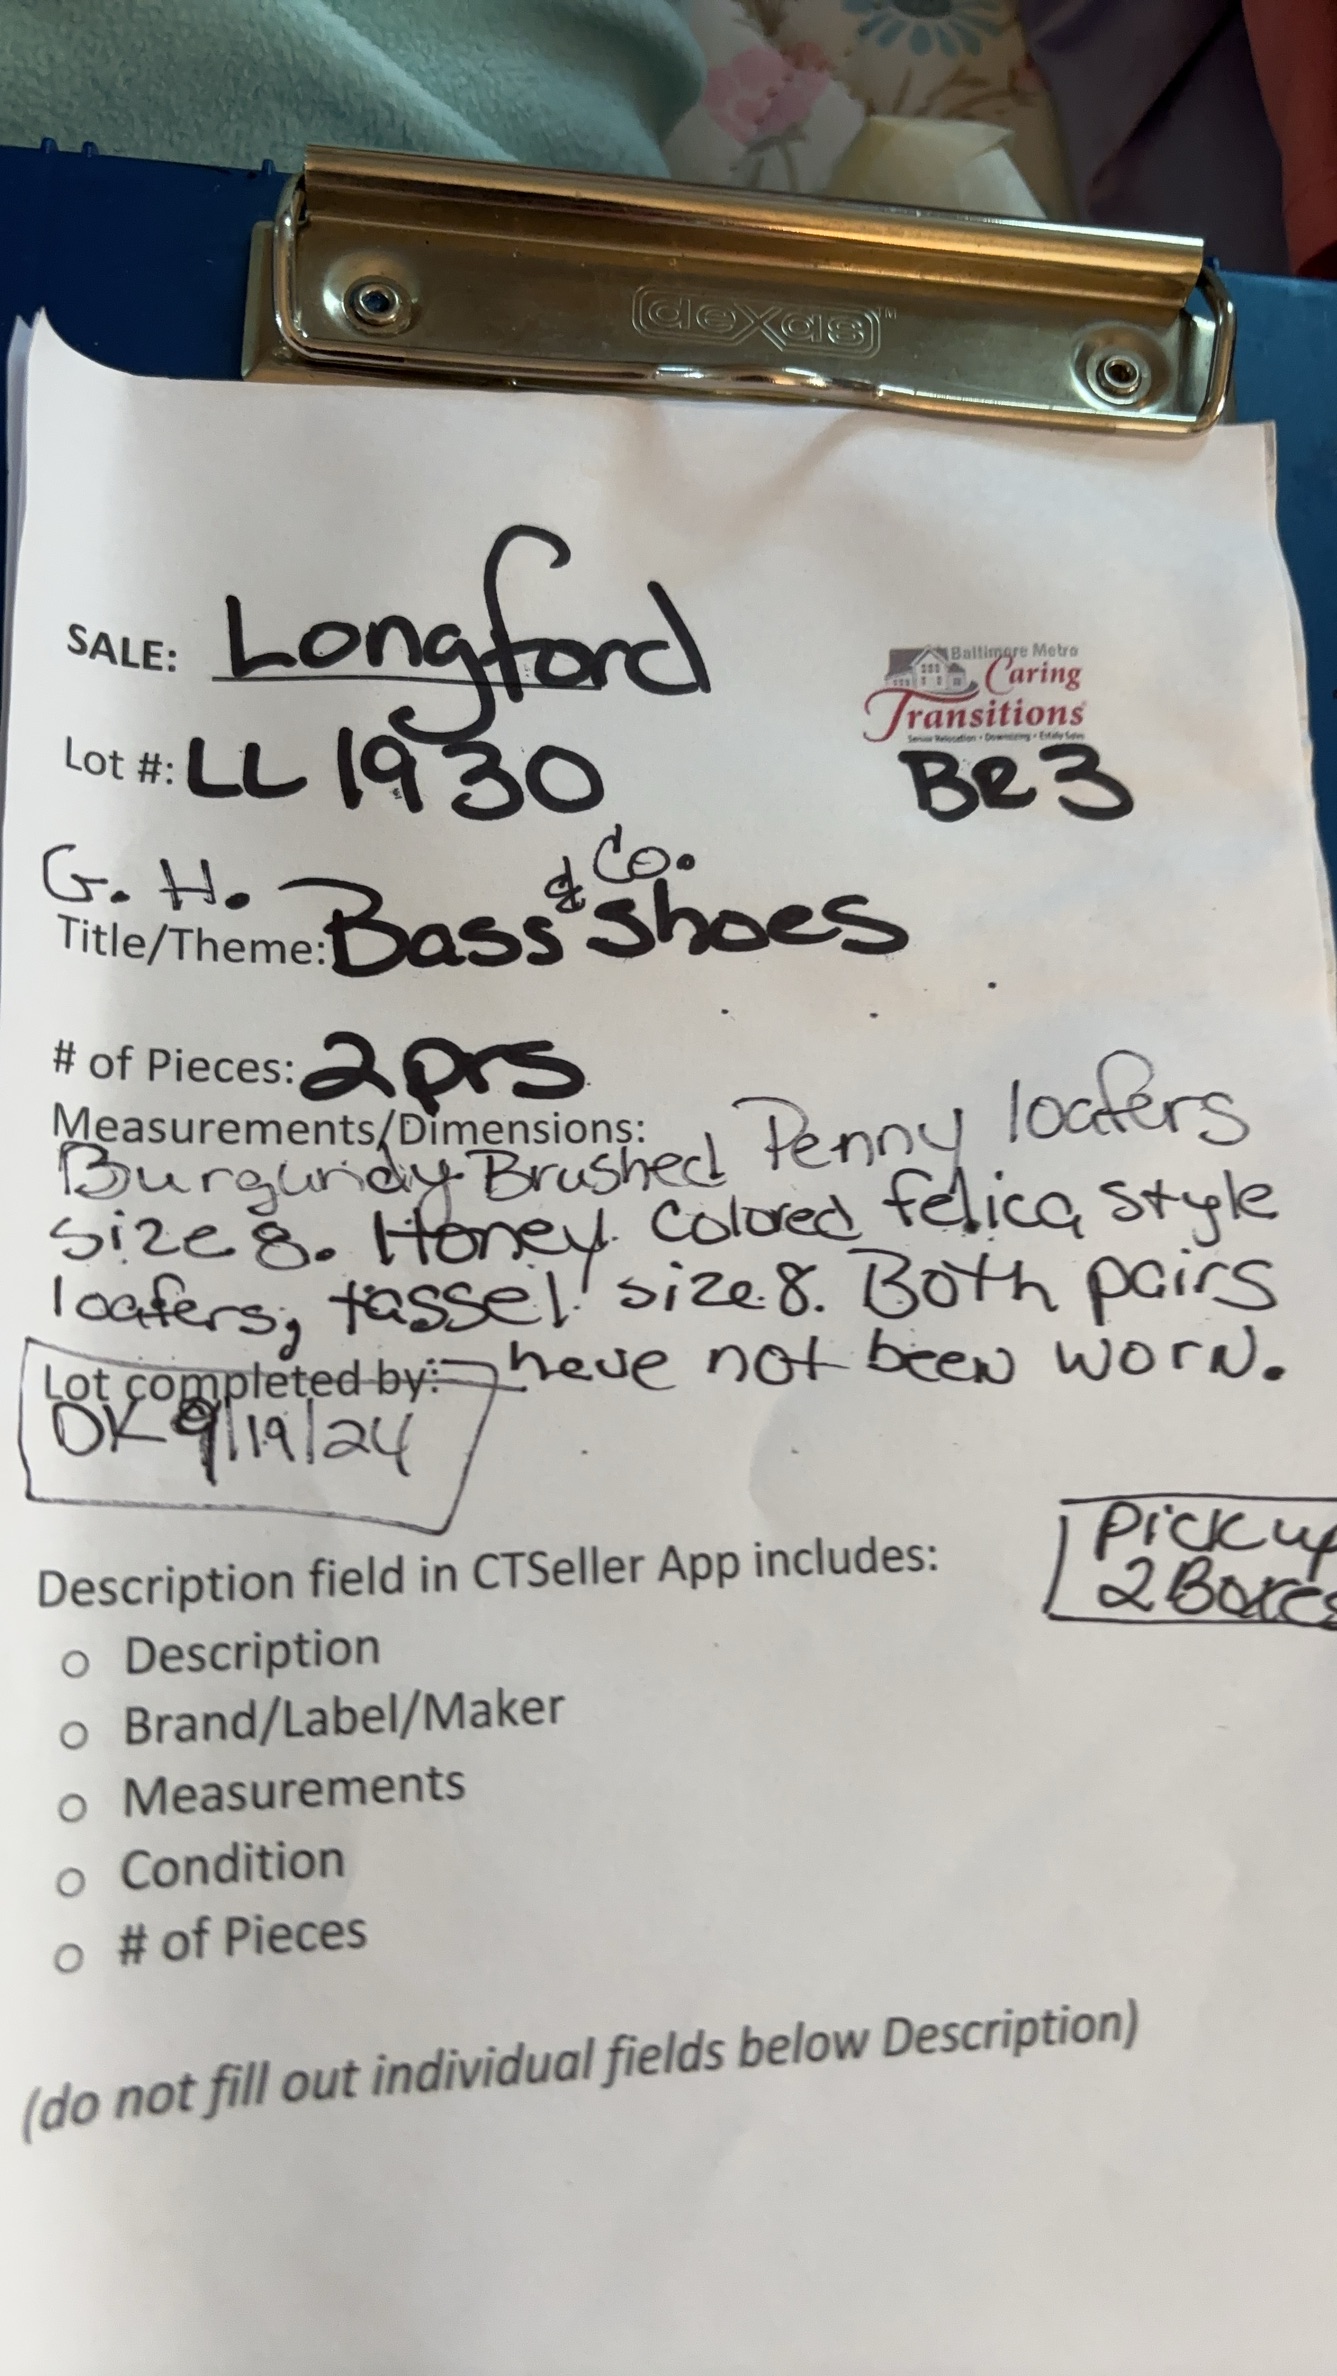 dexas™
SALE: Longford
Baltimore Metro
Caring
Transitions
Senior Relocation • Downsizing • Estate Sales
Lot #: LL 1930
BR3
G. H. Bass & Co. shoes
Title/Theme:
# of Pieces: 2 prs
Measurements/Dimensions:
Burgundy Brushed Penny loafers
size 8. Honey Colored felica style
loafers, tassel size 8. Both pairs
have not been worn.
Lot completed by:
DK 9/19/24
Pick up
2 Boxes
Description field in CTSeller App includes:
o Description
o Brand/Label/Maker
o Measurements
o Condition
o # of Pieces
(do not fill out individual fields below Description)